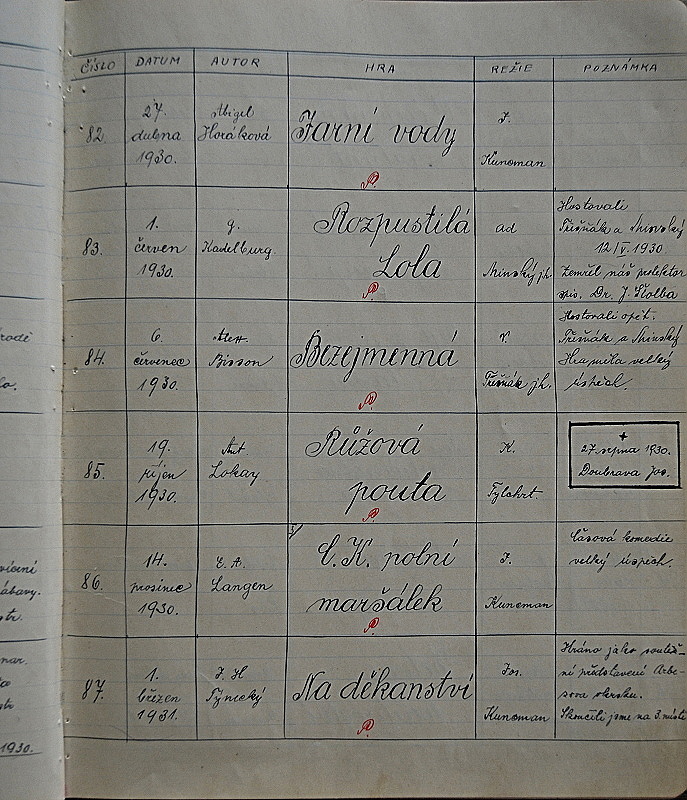 ČÍSLO DATUM AUTOR HRA REŽIE POZNÁMKA
82. 27. dubna 1930. Abigel Horáková Jarní vody J. Kuneman
83. 1. červen 1930. G. Kadelburg. Rozpustilá Lola ad Minský jh.
Hostovali
Třišňák a Minský
12/V. 1930.
Zemřel náš protektor
spis. Dr. J. Štolba
84. 6. červenec 1930. Alex. Bisson Bezejmenná V. Třišňák jh.
Hostovali opět.
Třišňák a Minský
Hra měla velký
úspěch.
85. 19. říjen 1930. Ant. Lokay Růžová pouta K. Tylchrt.
+
27. srpna 1930.
Doubrava Jos.
86. 14. prosinec 1930. E. A. Langen C. K. polní maršálek J. Kuneman
Časová komedie
velký úspěch.
87. 1. březen 1931. J. H. Tynický Na děkanství Jos. Kuneman
Hráno jako soutěž-
ní představení Arbe-
sova okrsku.
Skončili jsme na 3. místě
nar.
1930.